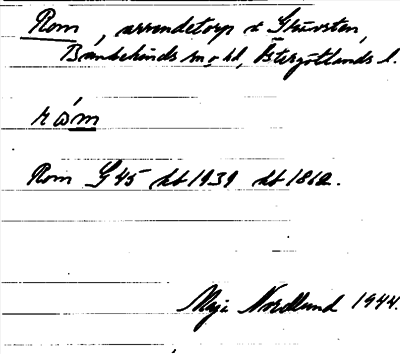 Rom, arrendetorp u Skuvsten,
Bankekinds sn o hd, Östergötlands l.
rώm
Rom G45 hb 1939 hb 1862.
Maja Nordlund 1944.